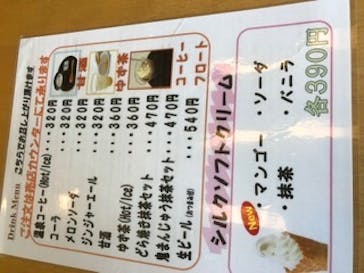 Drink Menu こちらでお召し上がり頂けます
ご注文は売店カウンターにて承ります
甘酒
ゆず茶
コーヒーフロート
温泉コーヒー(Hot/Ice)…320円
コーラ…320円
メロンソーダ…320円
ジンジャーエール…320円
甘酒…320円
ゆず茶(Hot/Ice)…360円
どら焼き抹茶セット…470円
鬼まんじゅう抹茶セット…470円
生ビール(おつまみ付)…540円
シルクソフトクリーム
New
・マンゴー ・ソーダ
・抹茶 ・バニラ
各390円